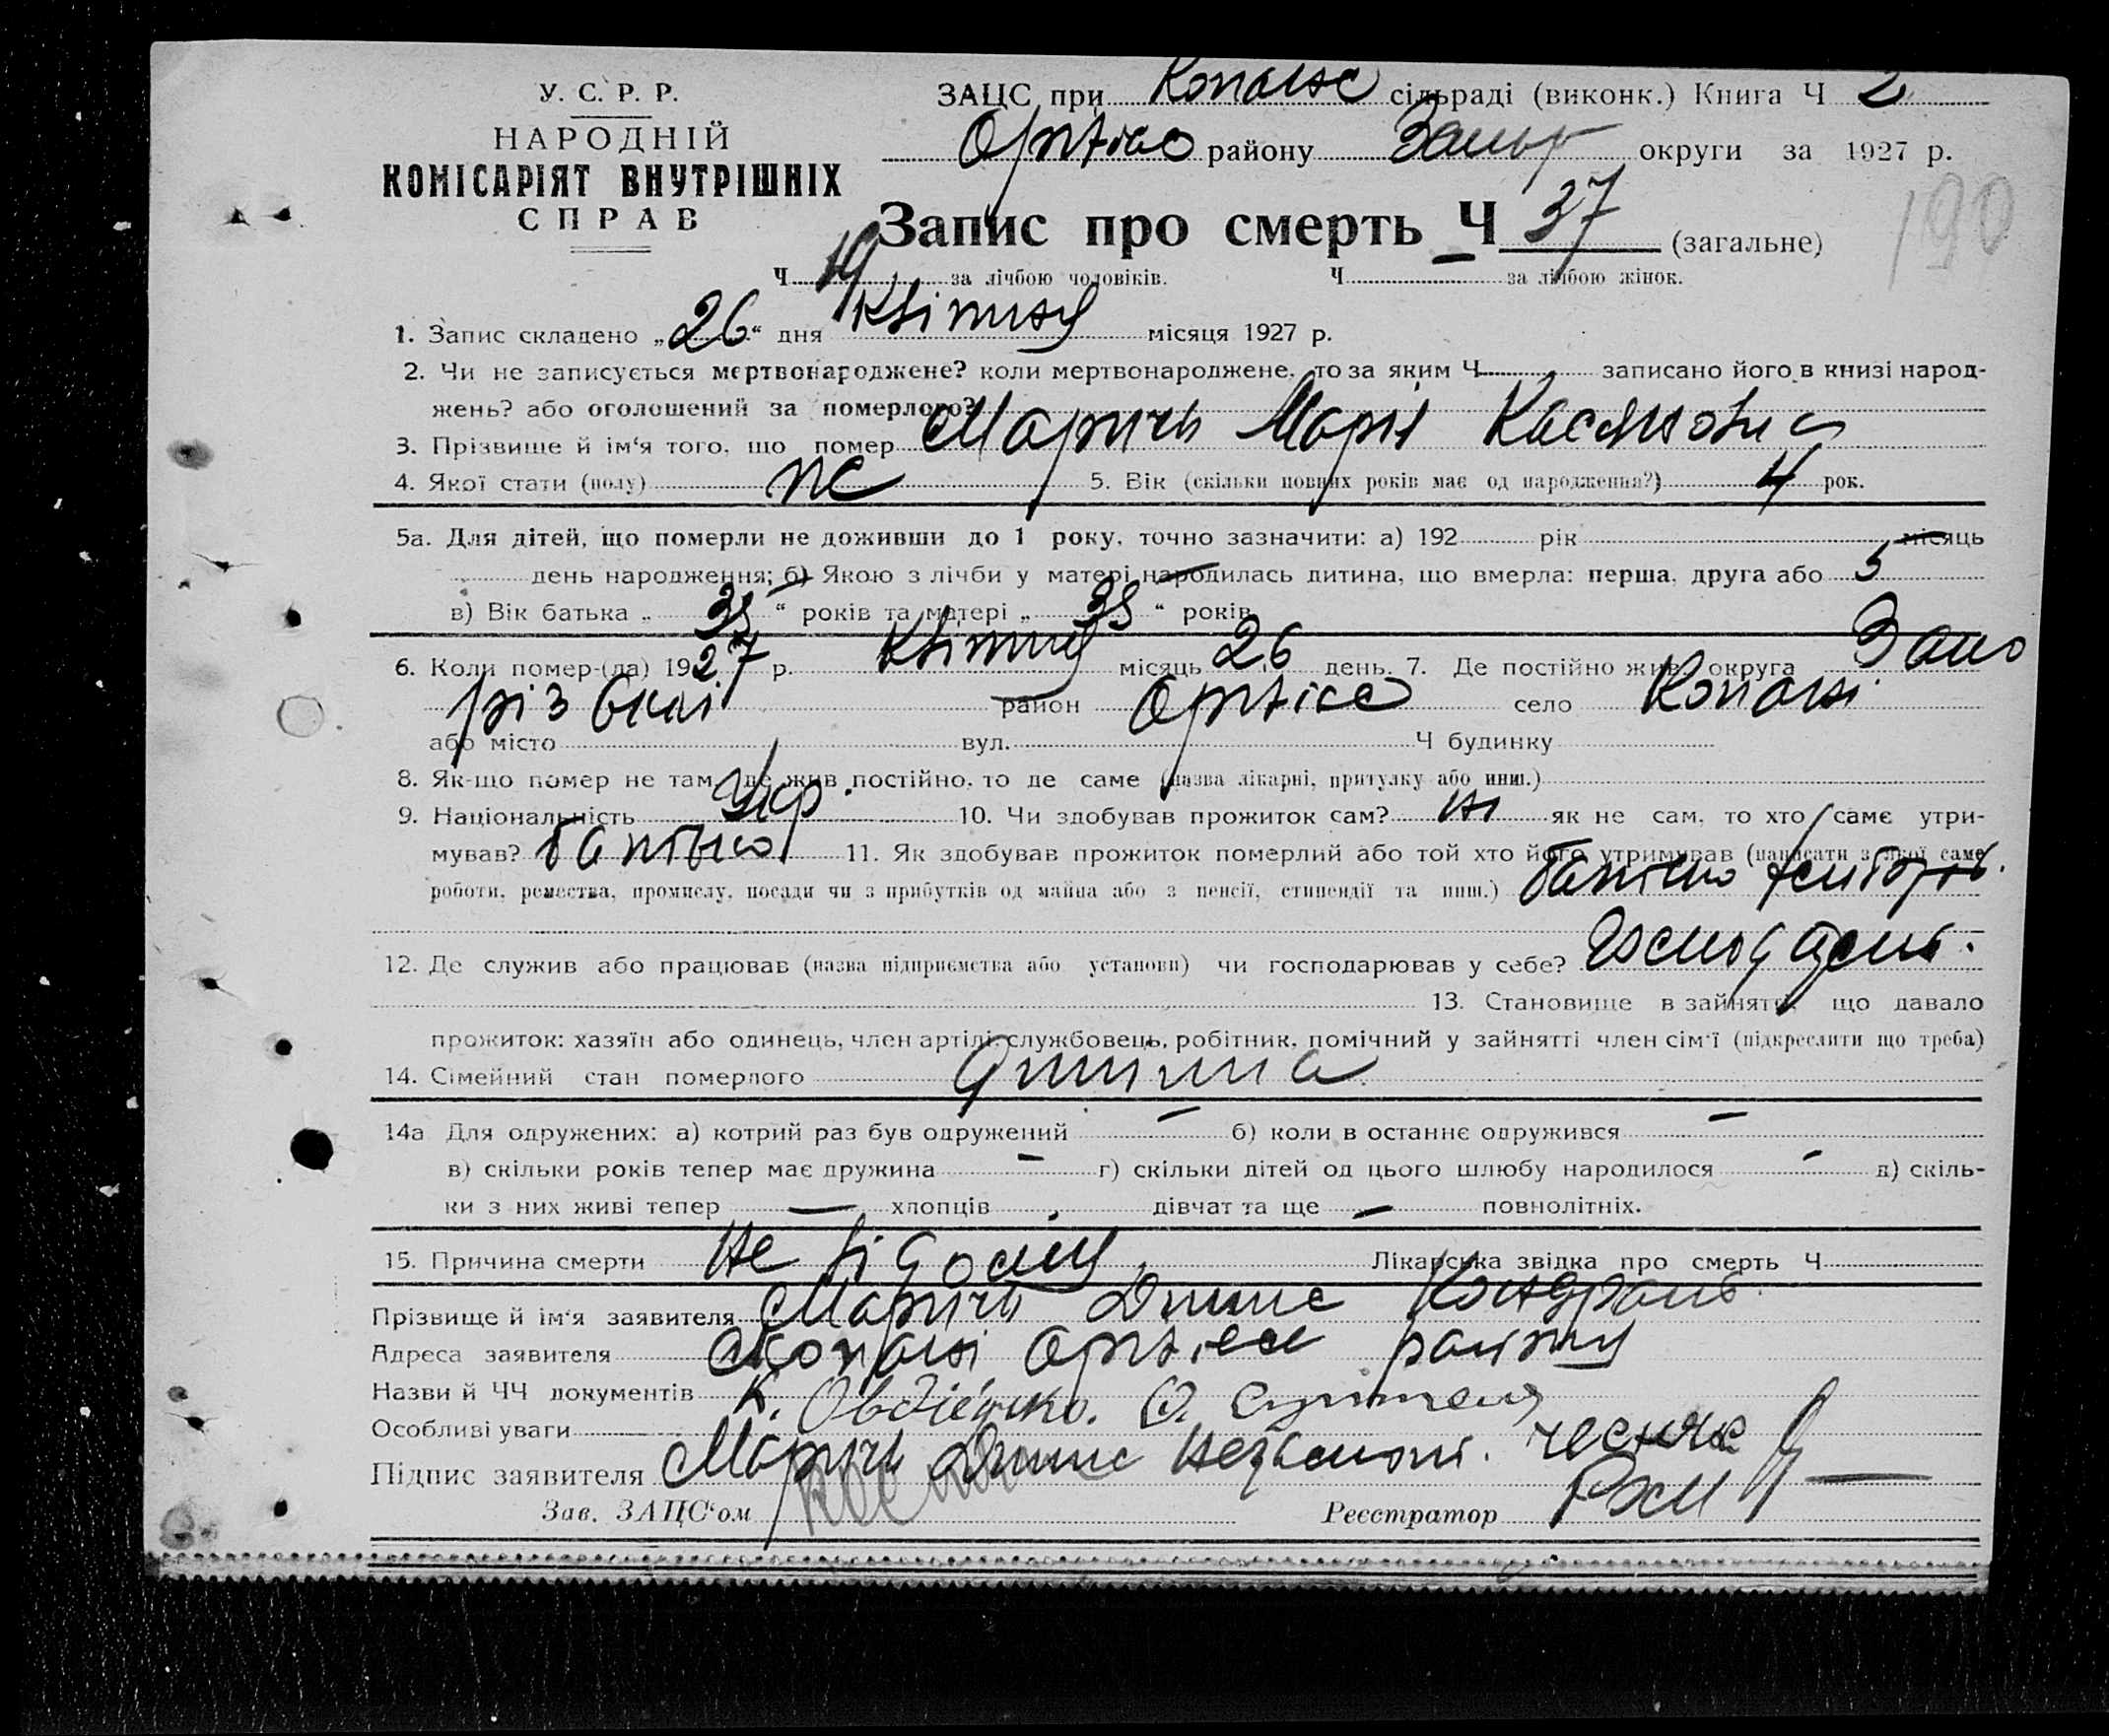 У. С. Р. Р.
НАРОДНІЙ
КОМІСАРІЯТ ВНУТРІШНІХ
СПРАВ
ЗАЦС при Копансе сільраді (виконк.) Книга Ч 2
району округи за 1927 р.
Запис про смерть Ч 37 (загальне)
190
Ч 19 за лічбою чоловіків. Ч — за лічбою жінок.
1. Запис складено „26“ дня Квітня місяця 1927 р.
2. Чи не записується мертвонароджене? коли мертвонароджене, то за яким Ч записано його в книзі народ-
жень? або оголошений за померлого?
3. Прізвище й ім‘я того, що помер Маричь Марія Касяновна
4. Якої стати (полу) 5. Вік (скільки повних років має од народження?) 4 рок.
5а. Для дітей, що померли не доживши до 1 року, точно зазначити: а) 192 рік місяць
день народження; б) Якою з лічби у матері народилась дитина, що вмерла: перша, друга або 5
в) Вік батька „ 35 “ років та матері „ 35 “ років
6. Коли помер-(ла) 1927 р. місяць 26 день. 7. Де постійно жив: округа Запо
різській район Оріхівс село Копані
або місто вул. Ч будинку
8. Як-що помер не там, де жив постійно, то де саме (назва лікарні, притулку або инш.)
9. Національність Укр. 10. Чи здобував прожиток сам? ні як не сам, то хто саме утри-
мував? батько 11. Як здобував прожиток померлий або той хто його утримував (написати з якої саме
роботи, ремества, промислу, посади чи з прибутків од майна або з пенсії, стипендії та инш.) батько хлібороб.
12. Де служив або працював (назва підприємства або установи) чи господарював у себе?
13. Становище в зайнятті, що давало
прожиток: хазяїн або одинець, член артілі, службовець, робітник, помічний у зайнятті член сім‘ї (підкреслити що треба)
14. Сімейний стан померлого дитина
14а Для одружених: а) котрий раз був одружений — б) коли в останнє одружився —
в) скільки років тепер має дружина — г) скільки дітей од цього шлюбу народилося — д) скіль-
ки з них живі тепер — хлопців дівчат та ще — повнолітніх.
15. Причина смерти не відома Лікарська звідка про смерть Ч
Прізвище й ім‘я заявителя Маричь
Адреса заявителя Копані Оріхівс району
Назви й ЧЧ документів
Особливі уваги
Підпис заявителя Маричь
Зав. ЗАЦС‘ом Реєстратор